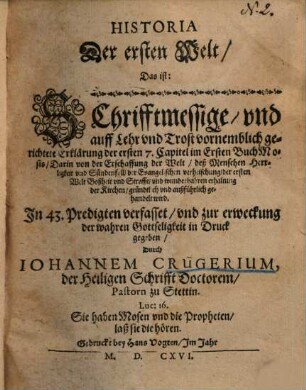 N. 2.
HISTORIA
Der ersten Welt/
Das ist:
SChrifftmessige/ vnd
auff Lehr vnd Trost vornemblich ge-
richtete Erklärung der ersten 7. Capitel im Ersten Buch Mo-
sis/ Darin von der Erschaffung der Welt/ deß Menschen Herr-
ligkeit vnd Sündenfall/ der Evangelischen verheischung/ der ersten
Welt Boßheit vnd Straffe/ vnd wunderbahren erhaltung
der Kirchen/ gründlich vnd außführlich ge-
handelt wird.
In 43. Predigten verfasset/ vnd zur erweckung
der wahren Gottseligkeit in Druck
gegeben/
Durch
IOHANNEM CRÜGERIUM,
der Heiligen Schrifft Doctorem/
Pastorn zu Stettin.
Luc: 16.
Sie haben Mosen vnd die Propheten/
laß sie die hören.
Gedruckt bey Hans Vogten/ Im Jahr
M. D. CXVI.